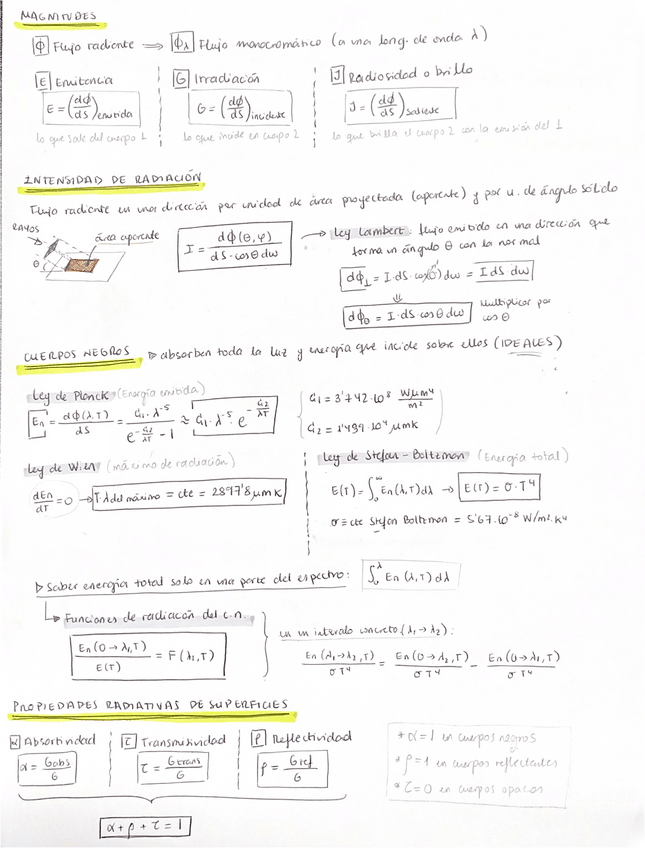 MAGNITUDES
Φ Flujo radiante ⟹ Φλ Flujo monocromático (a una long. de onda λ)
E Emitencia
G Irradiación
J Radiosidad o brillo
E = (dΦ/dS) emitida
G = (dΦ/dS) incidente
J = (dΦ/dS) saliente
lo que sale del cuerpo 1
lo que incide en cuerpo 2
lo que brilla el cuerpo 2 con la emisión del 1
INTENSIDAD DE RADIACIÓN
Flujo radiante en una dirección por unidad de área proyectada (aparente) y por u. de ángulo sólido
RAYOS
área aparente
θ
I = dΦ(θ,φ) / dS·cosθ dω
→ Ley Lambert: flujo emitido en una dirección que
forma un ángulo θ con la normal
dΦ⊥ = I·dS·cos(0) dω = I dS dω
⇓
dΦθ = I·dS·cosθ dω
Multiplicar por
cos θ
CUERPOS NEGROS ▷ absorben toda la luz y energía que incide sobre ellos (IDEALES)
Ley de Planck (Energía emitida)
En = dΦ(λ,T)/dS = C1·λ^-5 / e^-C2/λT - 1 ≈ C1·λ^-5·e^-C2/λT
C1 = 3'742·10^8 Wμm^4/m^2
C2 = 1'439·10^4 μmK
Ley de Wien (máximo de radiación)
dEn/dT = 0 → T·λ del máximo = cte = 2897'8 μmK
Ley de Stefan-Boltzman (Energía total)
E(T) = ∫0^∞ En(λ,T)dλ → E(T) = σ·T^4
σ ≡ cte Stefan Boltzman = 5'67·10^-8 W/m²·K^4
▷ Saber energía total solo en una parte del espectro: ∫0^λ En(λ,T)dλ
↳ Funciones de radiación del c.n.
En(0→λ1,T) / E(T) = F(λ1,T)
en un intervalo concreto (λ1→λ2):
En(λ1→λ2,T)/σT^4 = En(0→λ2,T)/σT^4 - En(0→λ1,T)/σT^4
PROPIEDADES RADIATIVAS DE SUPERFICIES
α Absortividad
τ Transmisividad
ρ Reflectividad
α = Gabs/G
τ = Gtrans/G
ρ = Gref/G
* α=1 en cuerpos negros
* ρ=1 en cuerpos reflectantes
* τ=0 en cuerpos opacos
α + ρ + τ = 1